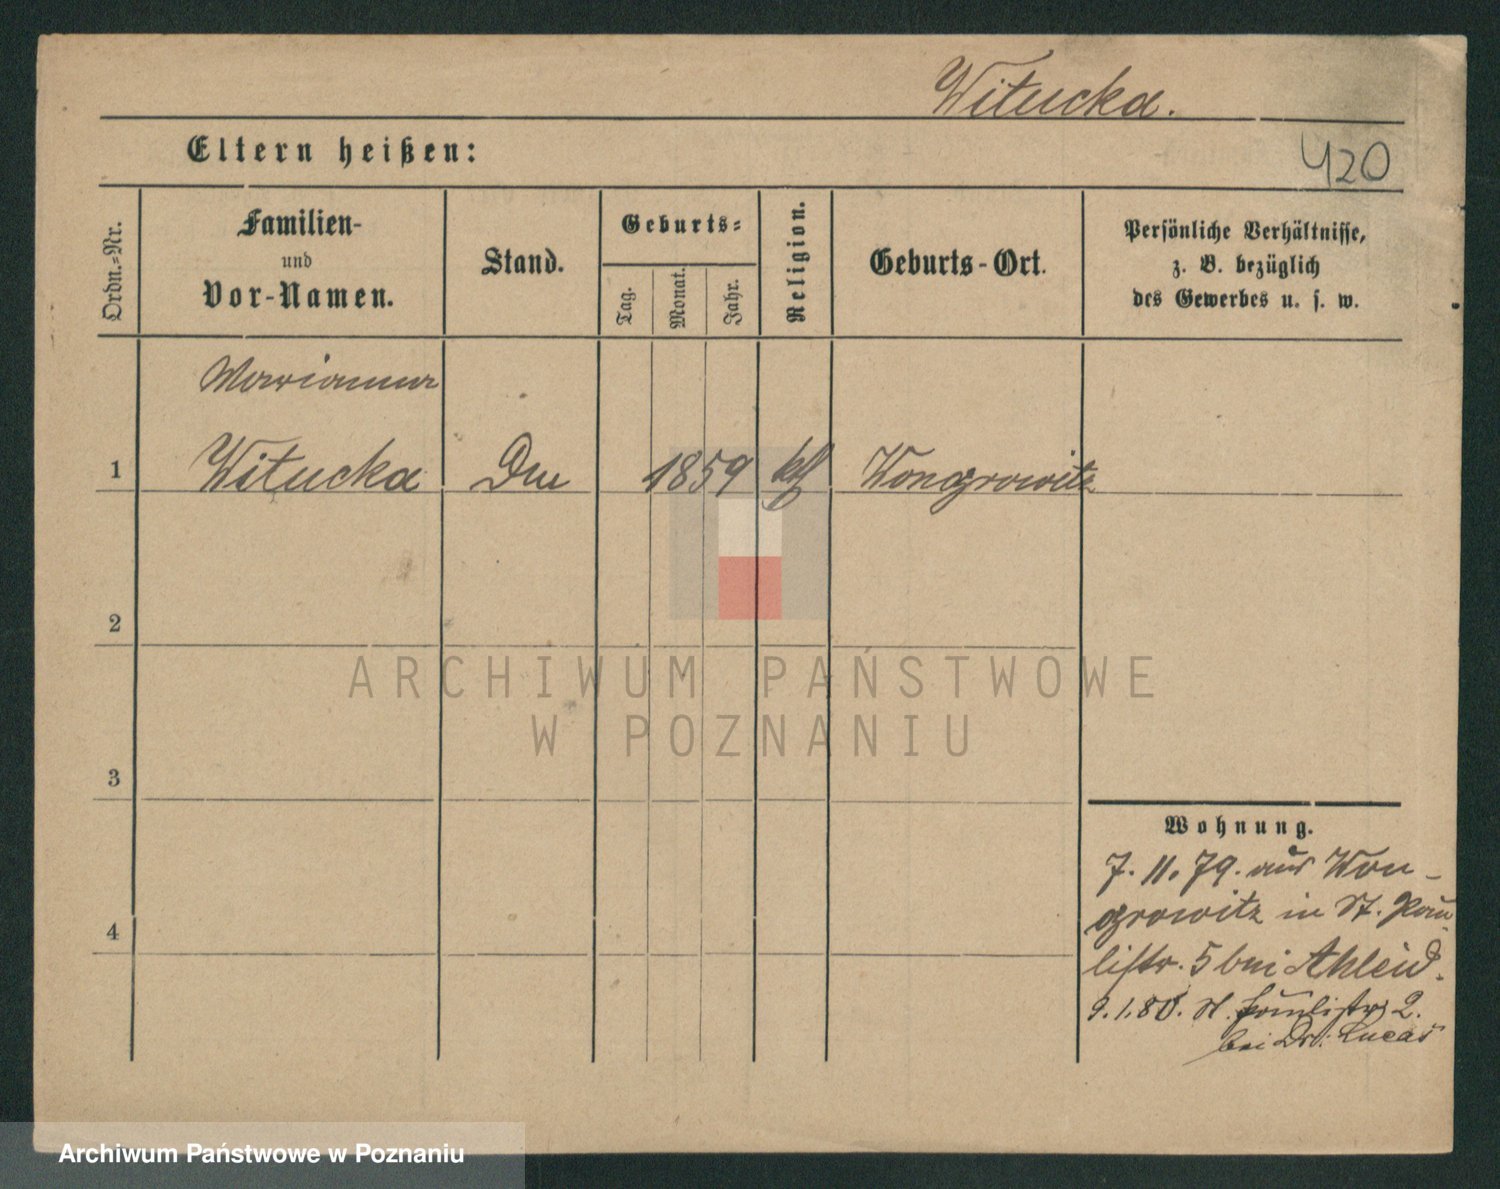 Witucka.
420
Eltern heißen:
Ordn.=Nr.
Familien-
und
Vor-Namen.
Stand.
Geburts=
Tag.
Monat.
Jahr.
Religion.
Geburts-Ort.
Persönliche Verhältnisse,
z. B. bezüglich
des Gewerbes u. s. w.
Marianna
1 Witucka 1859 kth Wongrowitz
2
3
4
ARCHIWUM PAŃSTWOWE
W POZNANIU
Wohnung.
7. 11. 79. aus Won-
growitz in St. Pau-
listr. 5 bei Ahleid.
9. 1. 80. St. Paulistr. 2.
bei Dr. Lucas
Archiwum Państwowe w Poznaniu